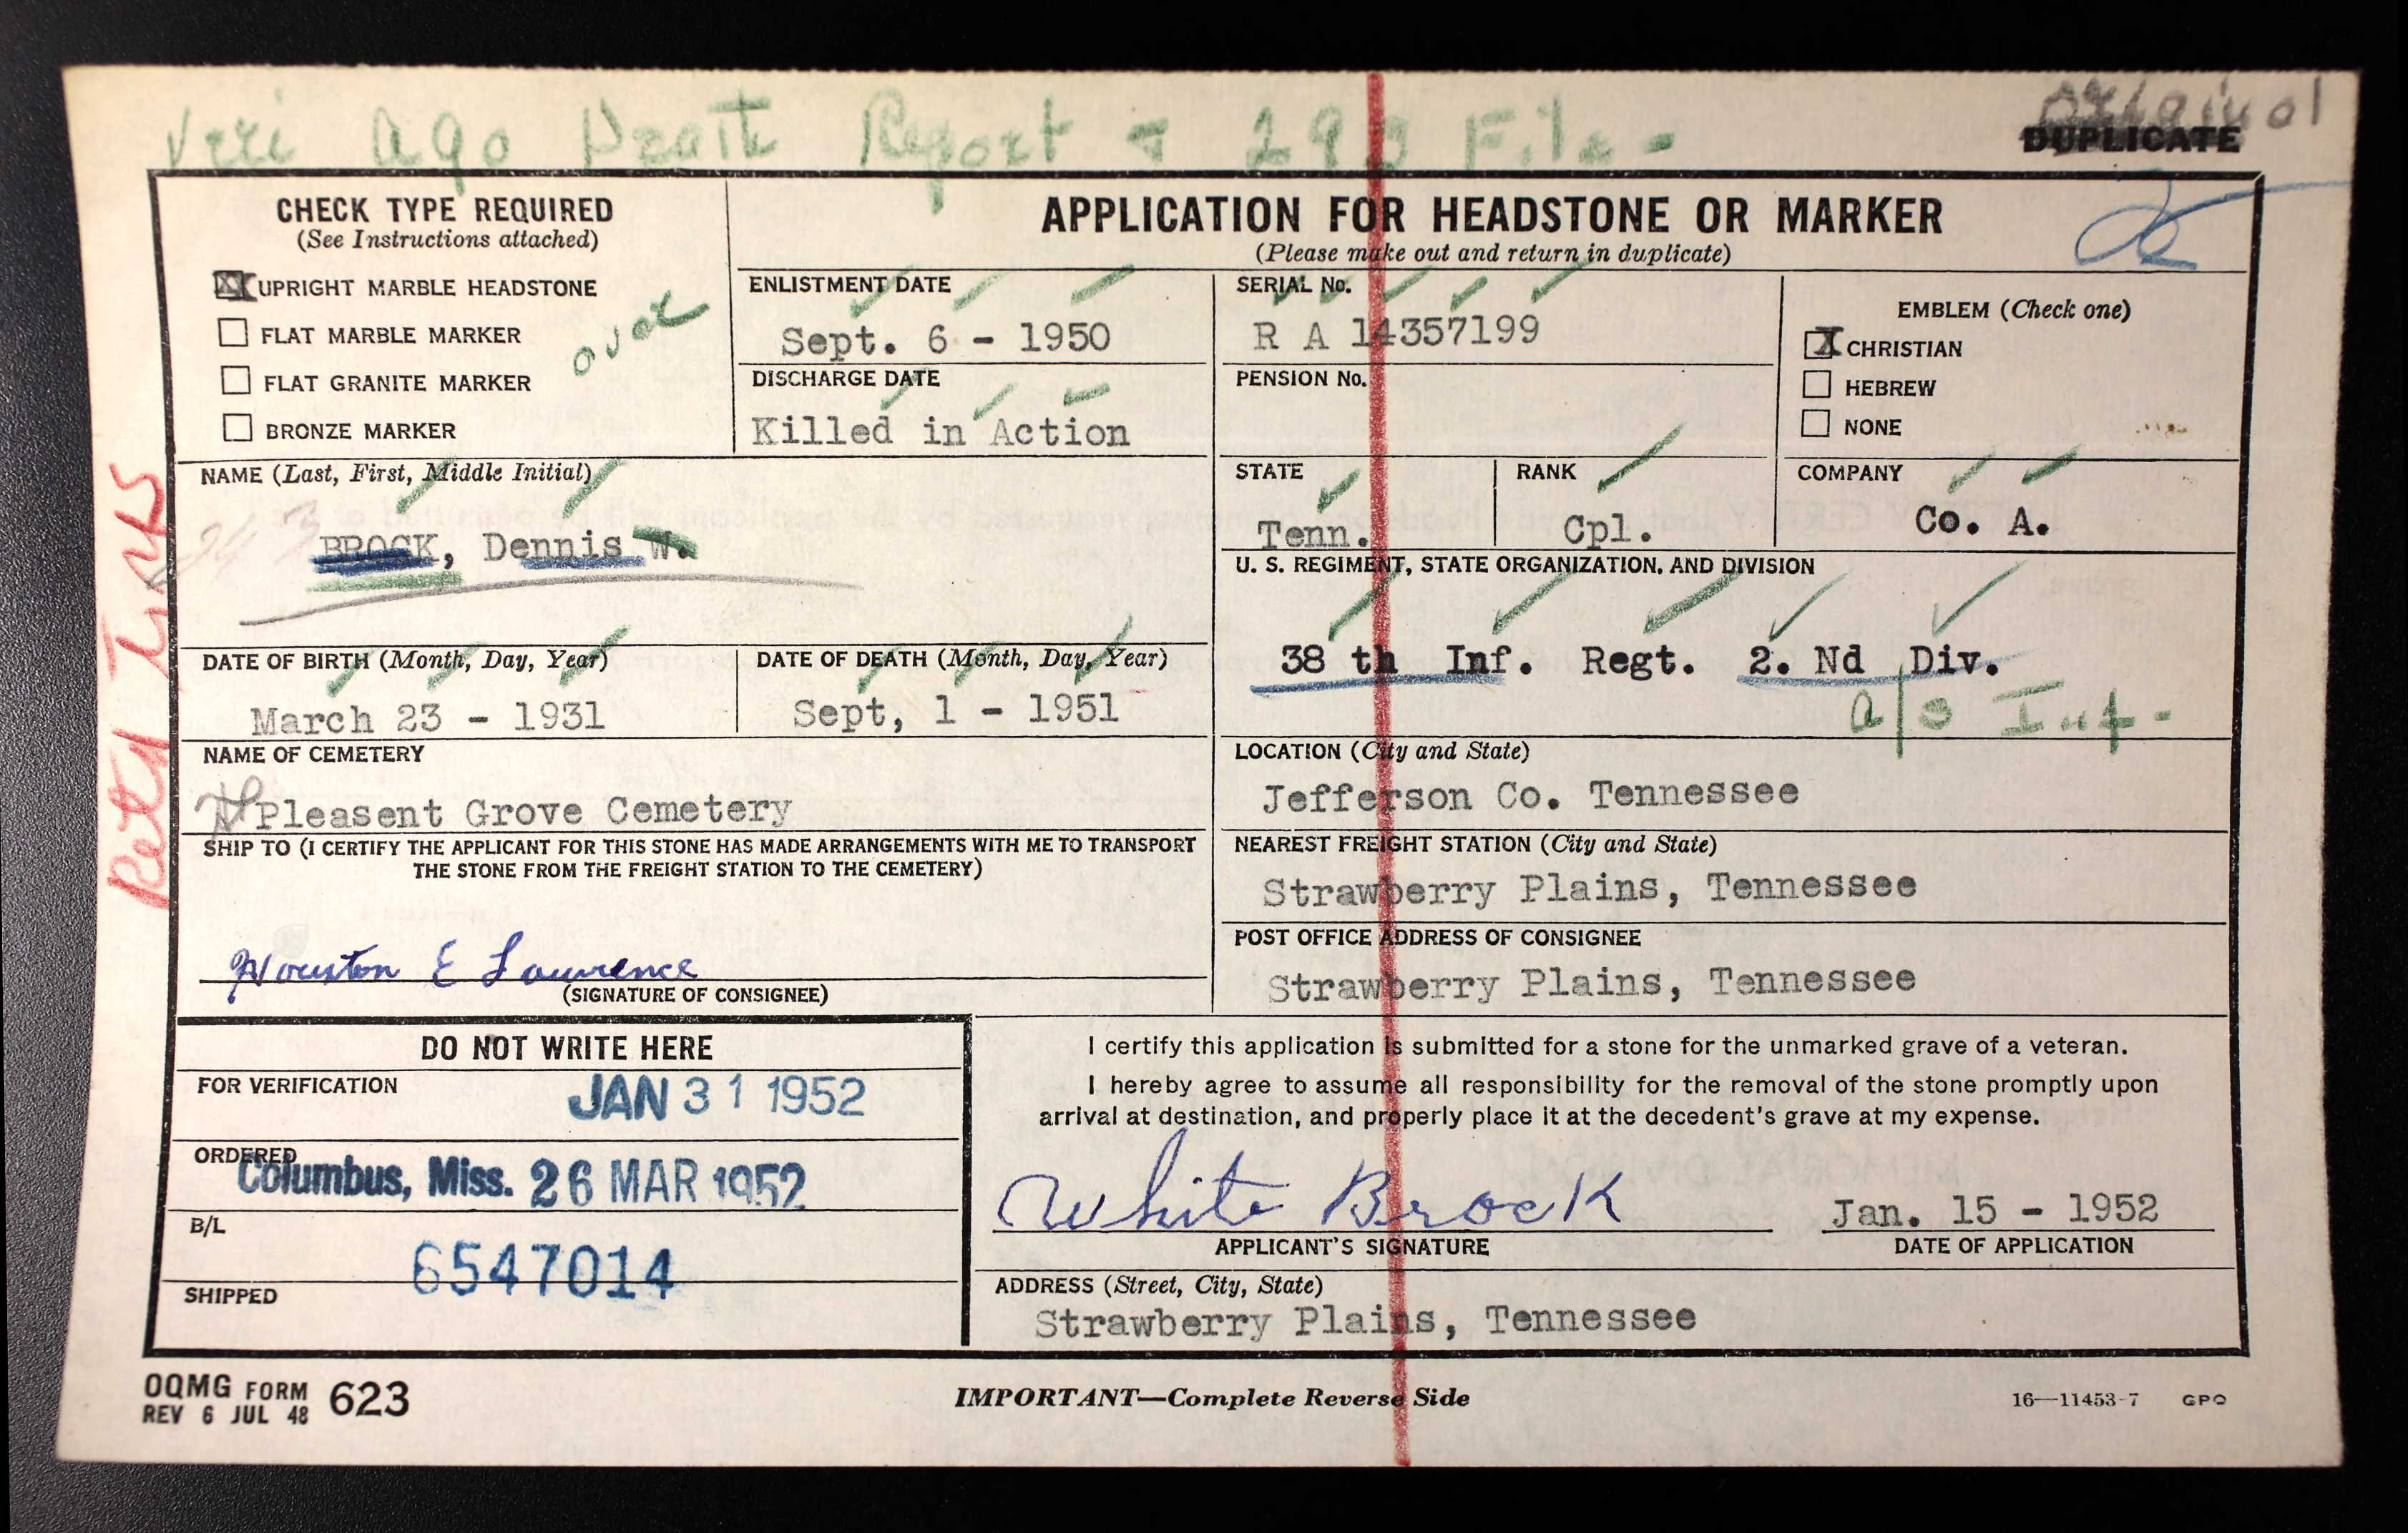 Veri AGO Death Report & 293 File -
Original
DUPLICATE
CHECK TYPE REQUIRED
(See Instructions attached)
X UPRIGHT MARBLE HEADSTONE
FLAT MARBLE MARKER
FLAT GRANITE MARKER
BRONZE MARKER
over
APPLICATION FOR HEADSTONE OR MARKER
(Please make out and return in duplicate)
ENLISTMENT DATE
Sept. 6 - 1950
DISCHARGE DATE
Killed in Action
SERIAL No.
R A 14357199
PENSION No.
EMBLEM (Check one)
X CHRISTIAN
HEBREW
NONE
NAME (Last, First, Middle Initial)
BROCK, Dennis W.
STATE
Tenn.
RANK
Cpl.
COMPANY
Co. A.
U. S. REGIMENT, STATE ORGANIZATION, AND DIVISION
38 th Inf. Regt. 2. Nd Div.
a/s Inf.
DATE OF BIRTH (Month, Day, Year)
March 23 - 1931
DATE OF DEATH (Month, Day, Year)
Sept, 1 - 1951
NAME OF CEMETERY
Pleasent Grove Cemetery
LOCATION (City and State)
Jefferson Co. Tennessee
SHIP TO (I CERTIFY THE APPLICANT FOR THIS STONE HAS MADE ARRANGEMENTS WITH ME TO TRANSPORT
THE STONE FROM THE FREIGHT STATION TO THE CEMETERY)
Houston E Lawrence
(SIGNATURE OF CONSIGNEE)
NEAREST FREIGHT STATION (City and State)
Strawberry Plains, Tennessee
POST OFFICE ADDRESS OF CONSIGNEE
Strawberry Plains, Tennessee
DO NOT WRITE HERE
FOR VERIFICATION
JAN 31 1952
ORDERED
Columbus, Miss. 26 MAR 1952
B/L
6547014
SHIPPED
I certify this application is submitted for a stone for the unmarked grave of a veteran.
I hereby agree to assume all responsibility for the removal of the stone promptly upon
arrival at destination, and properly place it at the decedent's grave at my expense.
White Brock
APPLICANT'S SIGNATURE
Jan. 15 - 1952
DATE OF APPLICATION
ADDRESS (Street, City, State)
Strawberry Plains, Tennessee
OQMG FORM 623
REV 6 JUL 48
IMPORTANT—Complete Reverse Side
16—11453-7 GPO